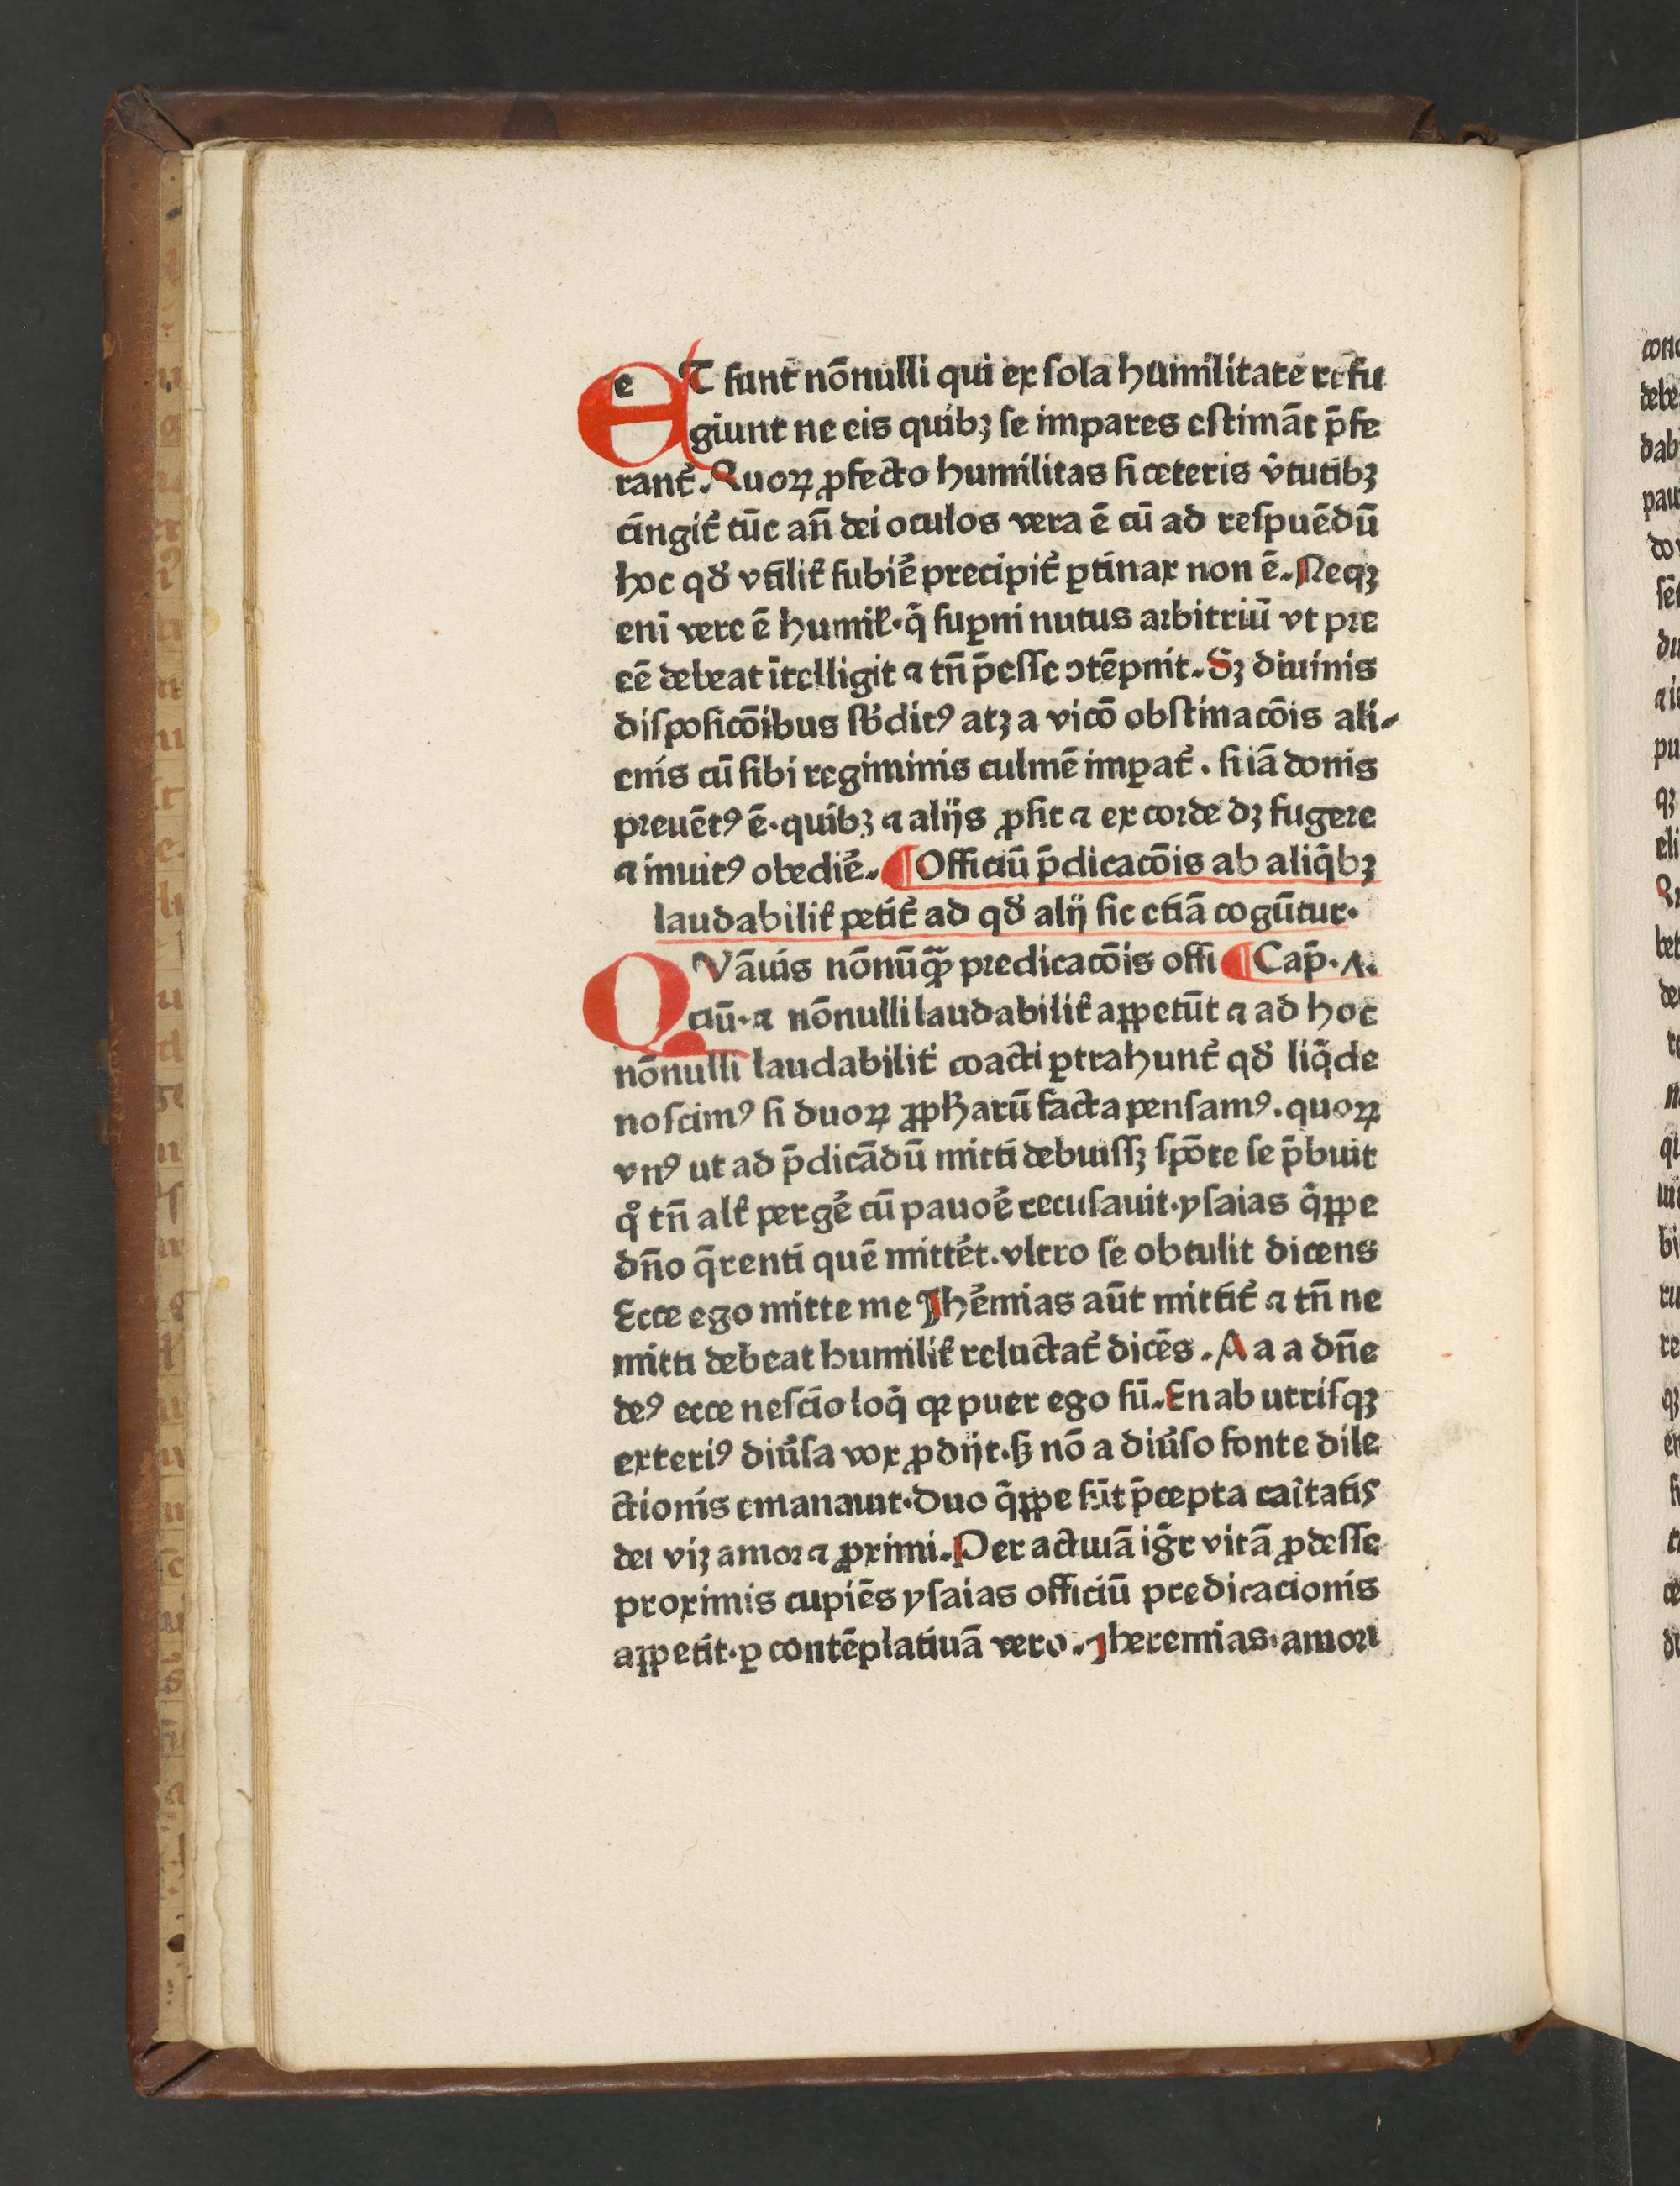 eT sunt nōnulli qui ex sola humilitate refu
giunt ne eis quibꝫ se impares estimāt p̄fe
rant᷑. Quoꝝ ꝓfecto humilitas si ceteris v̓tutibꝫ
cingit᷑ tūc an̄ dei oculos vera ē cū ad respuēdū
hoc qđ vtilit᷑ subiē precipit᷑ ꝑtinax non ē. Neqꝫ
eni vere ē humil᷑. q̄ suꝑni nutus arbitriū vt pre
eē debeat ītelligit ⁊ tn̄ p̄esse ɔtēpnit. Sꝫ diuinis
disposicōibus sb̓ditꝰ atꝫ a vicō obstinacōis ali-
enis cū sibi regiminis culmē imꝑat᷑. si iā donis
preuētꝰ ē. quibꝫ ⁊ alijs ꝓsit ⁊ ex corde dꝫ fugere
⁊ inuitꝰ obedi᷑e. ¶ Officiū p̄dicacōis ab aliq̄bꝫ
laudabilit᷑ petit᷑ ad qđ alij sic etiā cogūtur.
QVāuis nōnūꝙ̄ predicacōis offi ¶ Cap̄. ʌ.
ciū. ⁊ nōnulli laudabilit᷑ aꝑpetūt ⁊ ad hoc
nōnulli laudabilit᷑ coacti ꝑtrahunt᷑ qđ liq̄de
noscimꝰ si duoꝝ ꝓpħarū facta pensamꝰ. quoꝝ
vnꝰ ut ad p̄dicādū mitti debuissꝫ spōte se p̄buit
qͦ tn̄ alt᷑ perg᷑e cū pauoe᷑ recusauit. ysaias q̄ꝑpe
dn̄o q̄renti quē mitte᷑t. vltro se obtulit dicens
Ecce ego mitte me Jhe᷑mias aūt mittit᷑ ⁊ tn̄ ne
mitti debeat humilit᷑ reluctat᷑ dicēs. A a a dn̄e
deꝰ ecce nescio loq̄ qꝛ puer ego sū. En ab utrisqꝫ
exteriꝰ diu᷑sa vox ꝓdijt. sꝫ nō a diu᷑so fonte dile
ctionis emanauit. duo q̄ꝑpe sūt p̄cepta caītatis
dei viꝫ amor ⁊ ꝓximi. Per actiuā igr̄ vitā ꝓdesse
proximis cupiēs ysaias officiū predicacionis
aꝑpetit. ꝑ contēplatiuā vero. Jheremias. amori